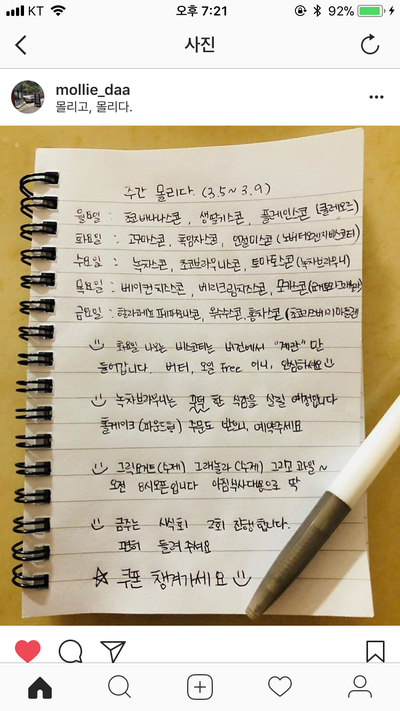 KT 오후 7:21 92%
사진
mollie_daa
몰리고, 몰리다.
주간 몰리다. (3.5~3.9)
월요일 : 초코바나나스콘, 생딸기스콘, 플레인스콘 (쿨레오즈)
화요일 : 고구마스콘, 흑임자스콘, 인절미스콘 (노버터오렌지비스코티)
수요일 : 녹차스콘, 초코브라우니스콘, 토마토스콘 (녹차브라우니)
목요일 : 베이컨치즈스콘, 베리크림치즈스콘, 모카스콘
금요일 : 할라피뇨페퍼로니스콘, 옥수수스콘, 홍차스콘
화요일 나오는 비스코티는 버건에서 "계란" 만
들어갑니다. 버터, 오일 Free 이니, 안심하세요
녹차브라우니는 꾸덕 한 식감을 살릴 예정입니다
홀케이크 (파운드형) 주문도 받으니, 예약주세요
그릭요거트 (수제) 그래놀라 (수제) 그리고 과일~
오전 8시오픈입니다 아침식사대용으로 딱
금주는 시식회 2회 진행합니다.
편히 들러주셔요
☆ 쿠폰 챙겨가세요